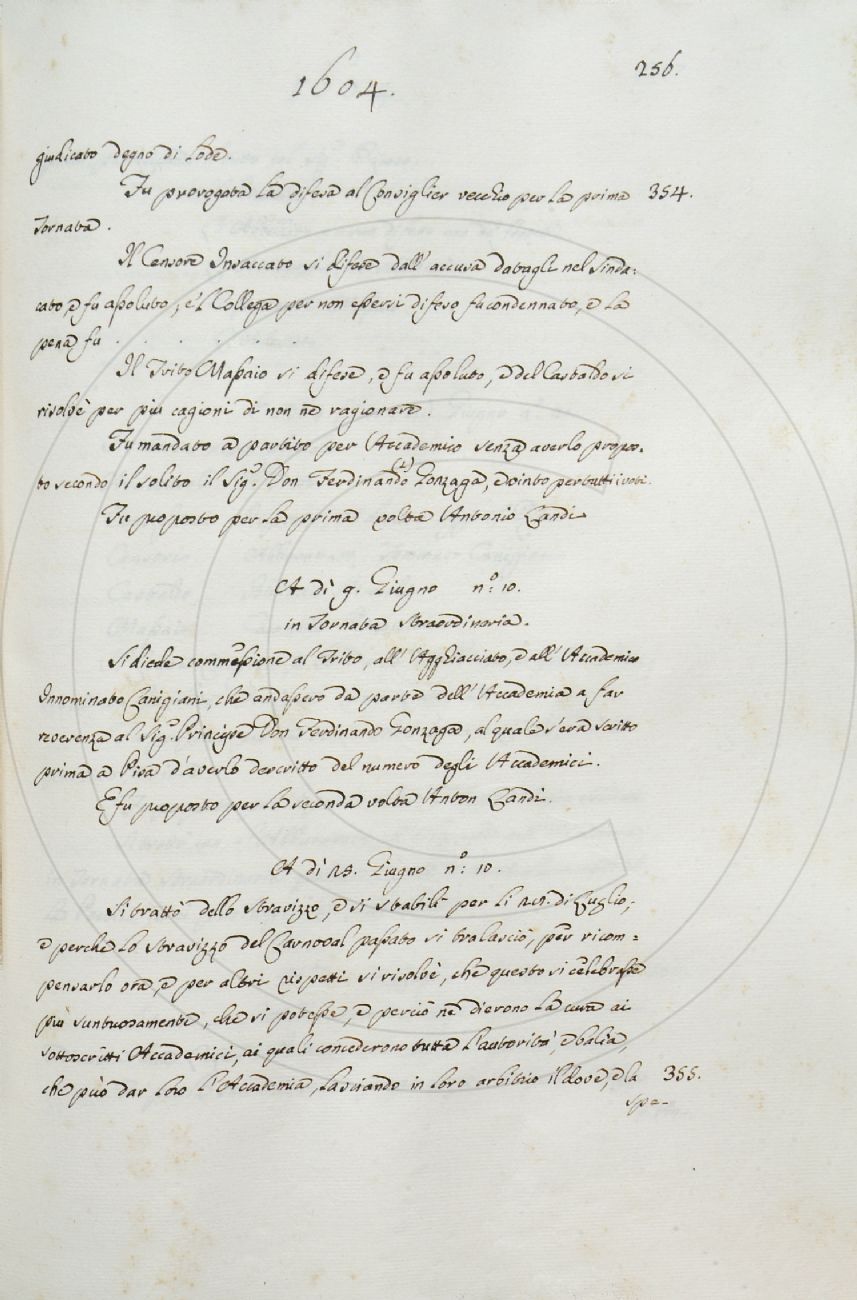 1604.
256.
giudicato degno di lode.
Fu prorogata la difesa al Consiglier vecchio per la prima 354.
Tornata.
Il Censore Insaccato si difese dall' accusa datagli nel sinda=
cato, e fu assoluto, e 'l Collega per non essersi difeso fu condennato, e la
pena fu . . . . . .
Il Trito Massaio si difese, e fu assoluto, e del Castaldo si
risolvè per più cagioni di non ne ragionare.
Fu mandato a partito per Accademico senza averlo propo=
to secondo il solito il Sig.r Don Ferdinando (1) Gonzaga, e vinto per tutti i voti.
Fu proposto per la prima volta Antonio Landi
A dì 9. Giugno n.o: 10.
in Tornata straordinaria.
Si diede commessione al Trito, all' Agghiacciato, e all' Accademico
Innominato Canigiani, che andassero da parte dell' Accademia a far
reverenza al Sig.r Principe Don Ferdinando Gonzaga, al quale s'era scritto
prima a Pisa d'averlo descritto del numero degli Accademici.
E fu proposto per la seconda volta Anton Landi.
A dì 25. Giugno n.o: 10.
Si trattò dello stravizzo, e si stabilì per li di Luglio,
e perche lo stravizzo del Carnoval passato si tralasciò, per ricom=
pensarlo ora, e per altri rispetti si risolvè, che questo si celebrasse
più suntuosamente, che si potesse, e perciò ne dierono la cura ai
sottoscritti Accademici, ai quali concederono tutta l'autorità, e balìa,
che può dar loro l'Accademia, lasciando in loro arbitrio il dove, e la 355.
spe-